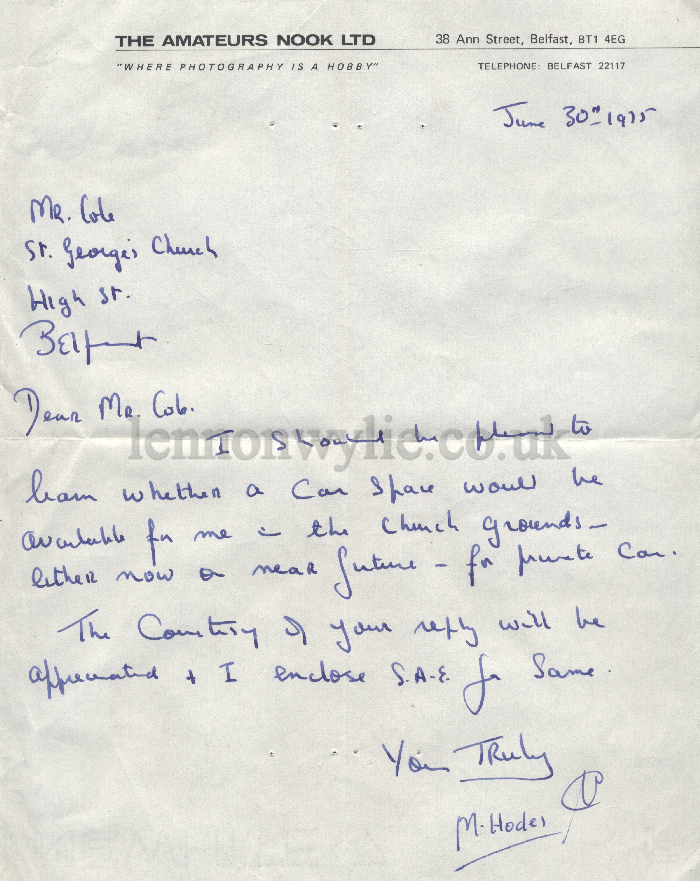 THE AMATEURS NOOK LTD 38 Ann Street, Belfast, BT1 4EG
"WHERE PHOTOGRAPHY IS A HOBBY" TELEPHONE: BELFAST 22117
June 30th 1975
Mr. Cole
St. George's Church
High St.
Belfast
Dear Mr. Cole.
lennonwylie.co.uk
I should be pleased to
learn whether a Car Space would be
available for me in the Church grounds -
either now or near future - for private Car.
The Courtesy of your reply will be
appreciated + I enclose S.A.E. for Same.
Yours Truly
M. Hodes